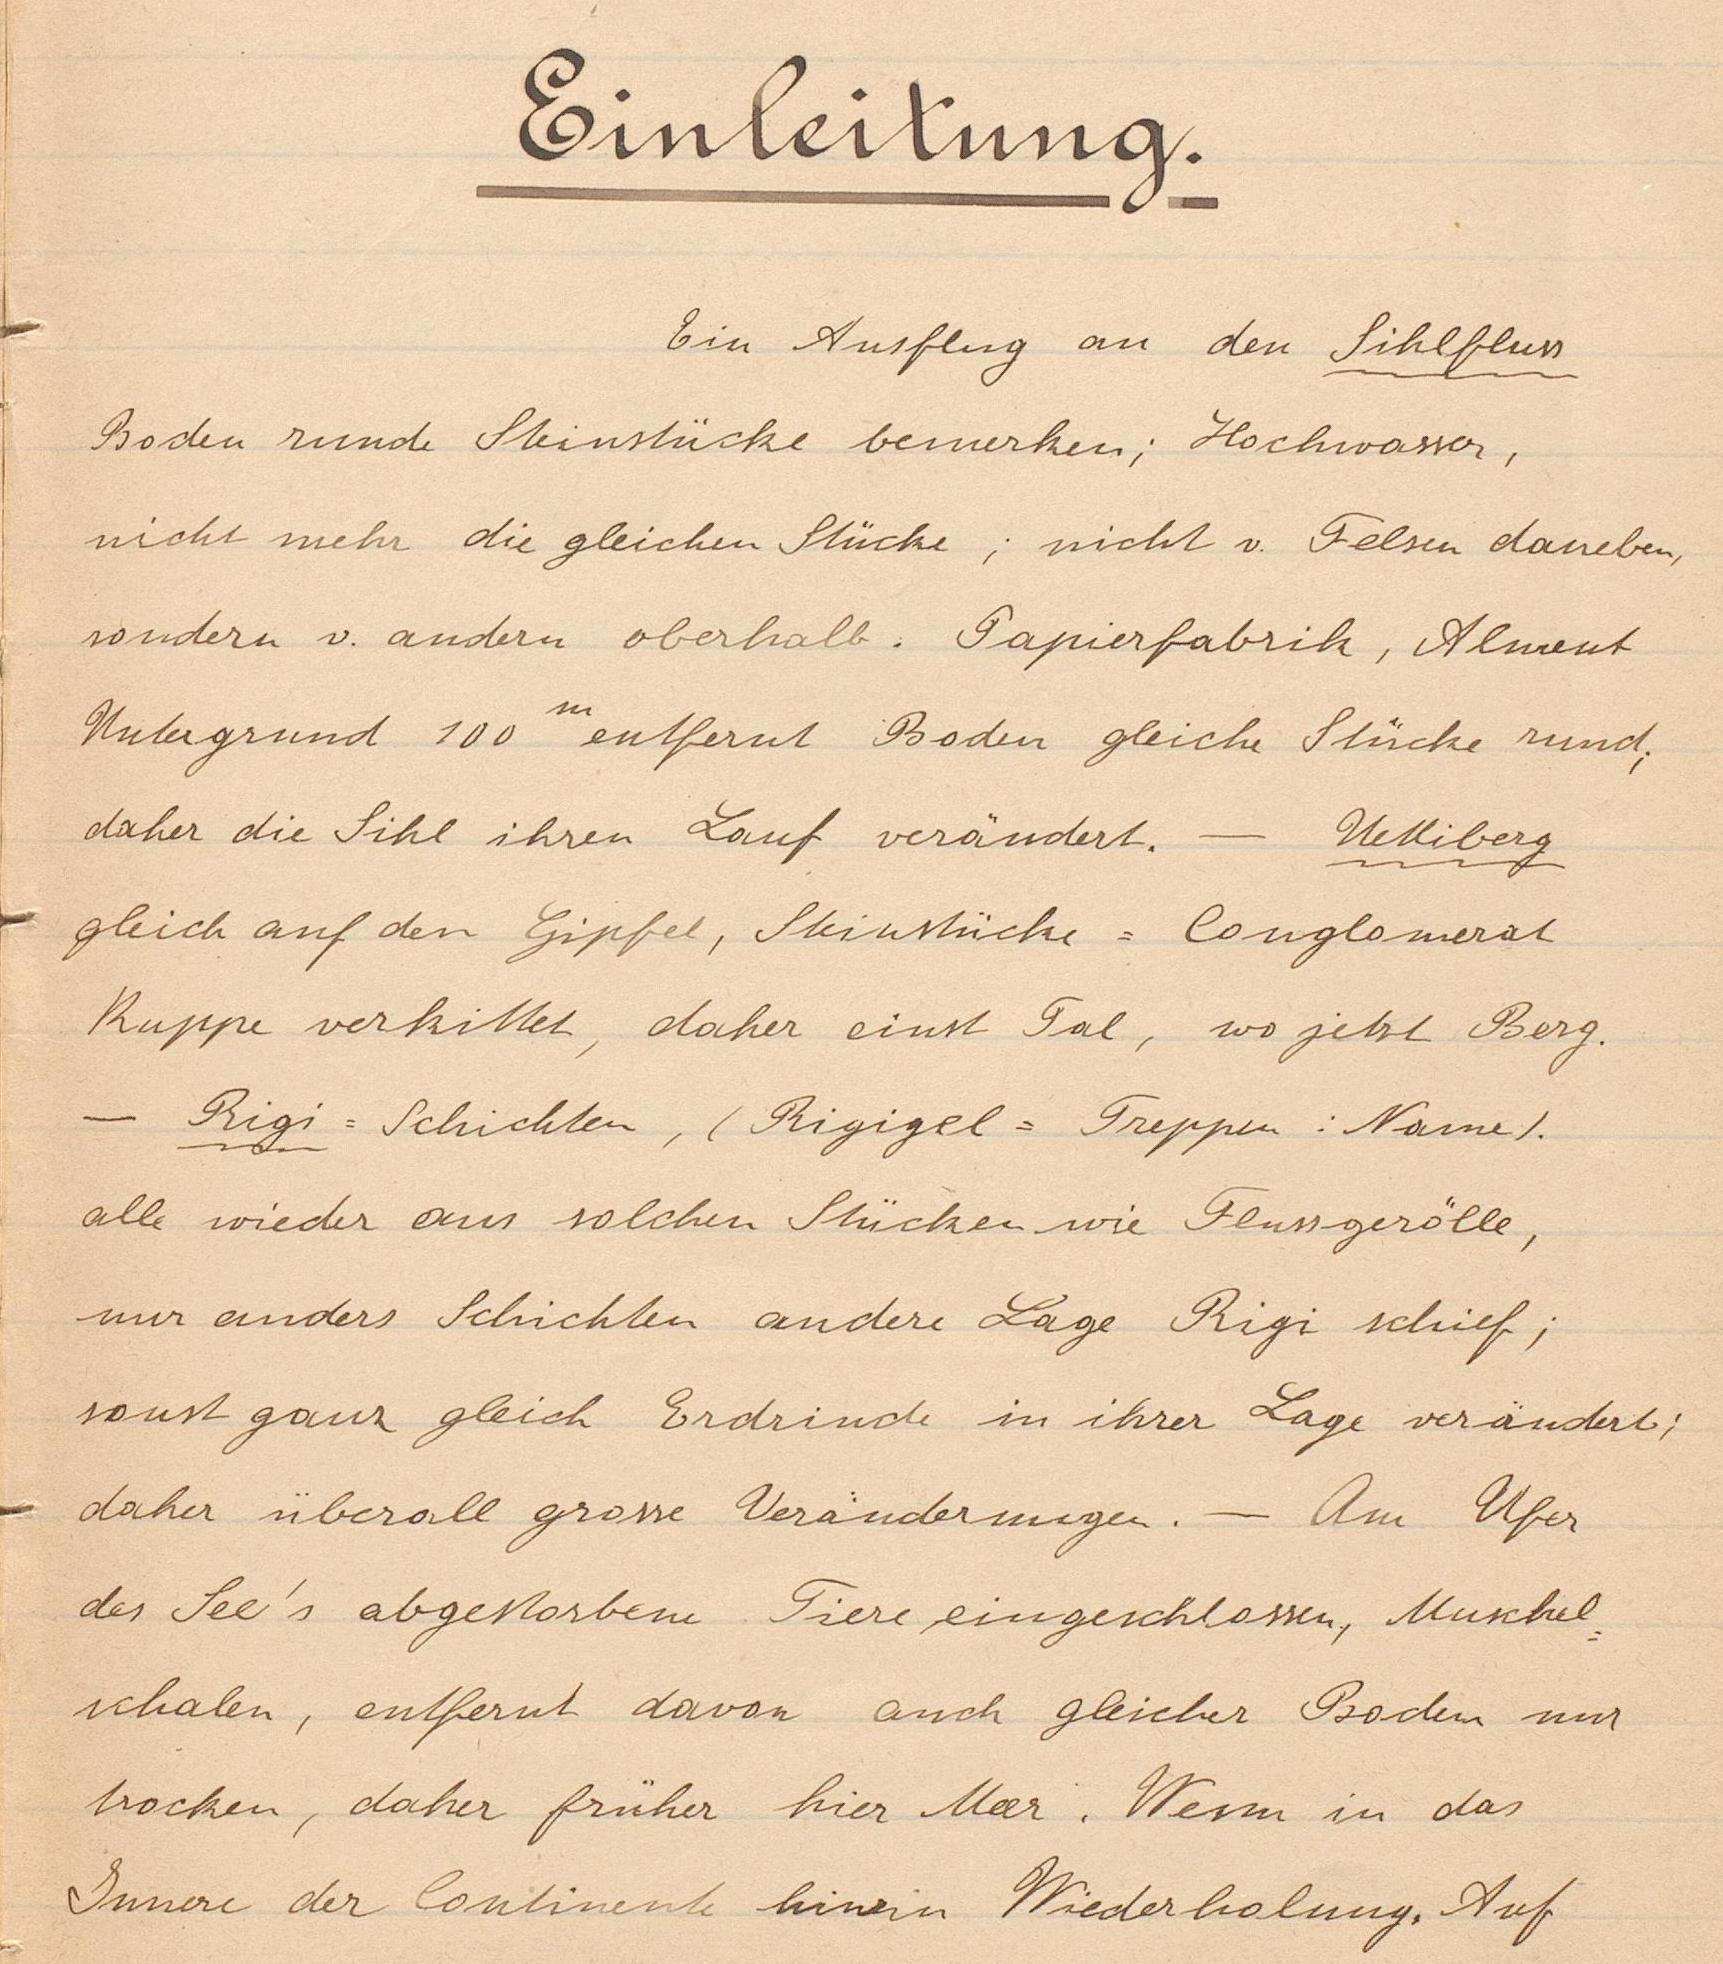 Einleitung.
Ein Ausflug an den Sihlfluss
Boden runde Steinstücke bemerken; Hochwasser,
nicht mehr die gleichen Stücke ; nicht v. Felsen daneben,
sondern v. andern oberhalb. Papierfabrik, Alment
Untergrund 100 m entfernt Boden gleiche Stücke rund;
daher die Sihl ihren Lauf verändert. — Uetliberg
gleich auf den Gipfel, Steinstücke = Conglomerat
Kuppe verkittet, daher einst Tal, wo jetzt Berg.
— Rigi = Schichten, (Rigigel = Treppen : Name).
alle wieder aus solchen Stücken wie Flussgerölle,
nur anders Schichten andere Lage Rigi schief;
sonst ganz gleich Erdrinde in ihrer Lage verändert;
daher überall grosse Veränderungen. — Am Ufer
des See's abgestorbene Tiere eingeschlossen, Muschel=
schalen, entfernt davon auch gleicher Boden nur
trocken, daher früher hier Meer. Wenn in das
Innere der Continente hinein Wiederholung. Auf